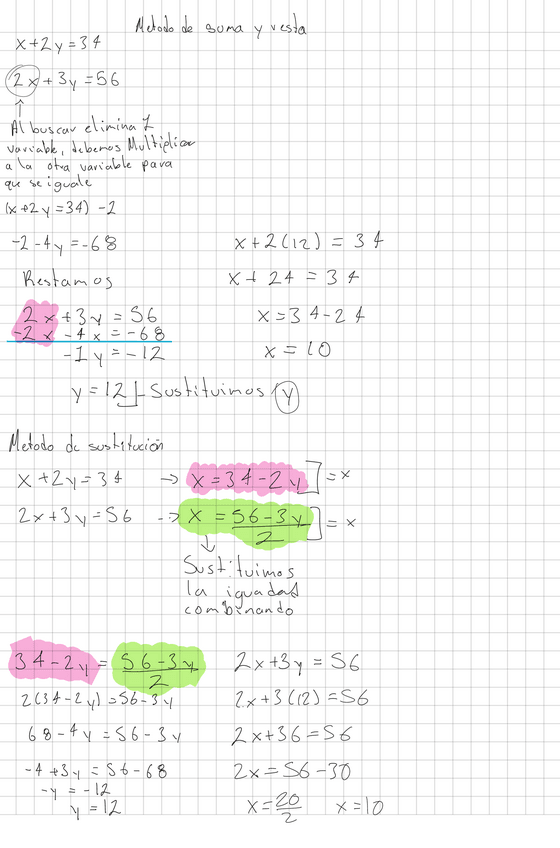 Metodo de suma y resta
x+2y=34
2x+3y=56
Al buscar elimina 1
variable, debemos Multiplicar
a la otra variable para
que se iguale
(x+2y=34) -2
-2-4y=-68
Restamos
2x+3y=56
-2x-4x=-68
-1y=-12
y=12 Sustituimos y
x+2(12)=34
x+24=34
x=34-24
x=10
Metodo de sustitución
x+2y=34 → x=34-2y ] =x
2x+3y=56 → x=56-3y/2 ] =x
Sustituimos
la igualdad
combinando
34-2y=56-3y/2
2(34-2y)=56-3y
68-4y=56-3y
-4+3y=56-68
-y=-12
y=12
2x+3y=56
2x+3(12)=56
2x+36=56
2x=56-30
x=20/2 x=10